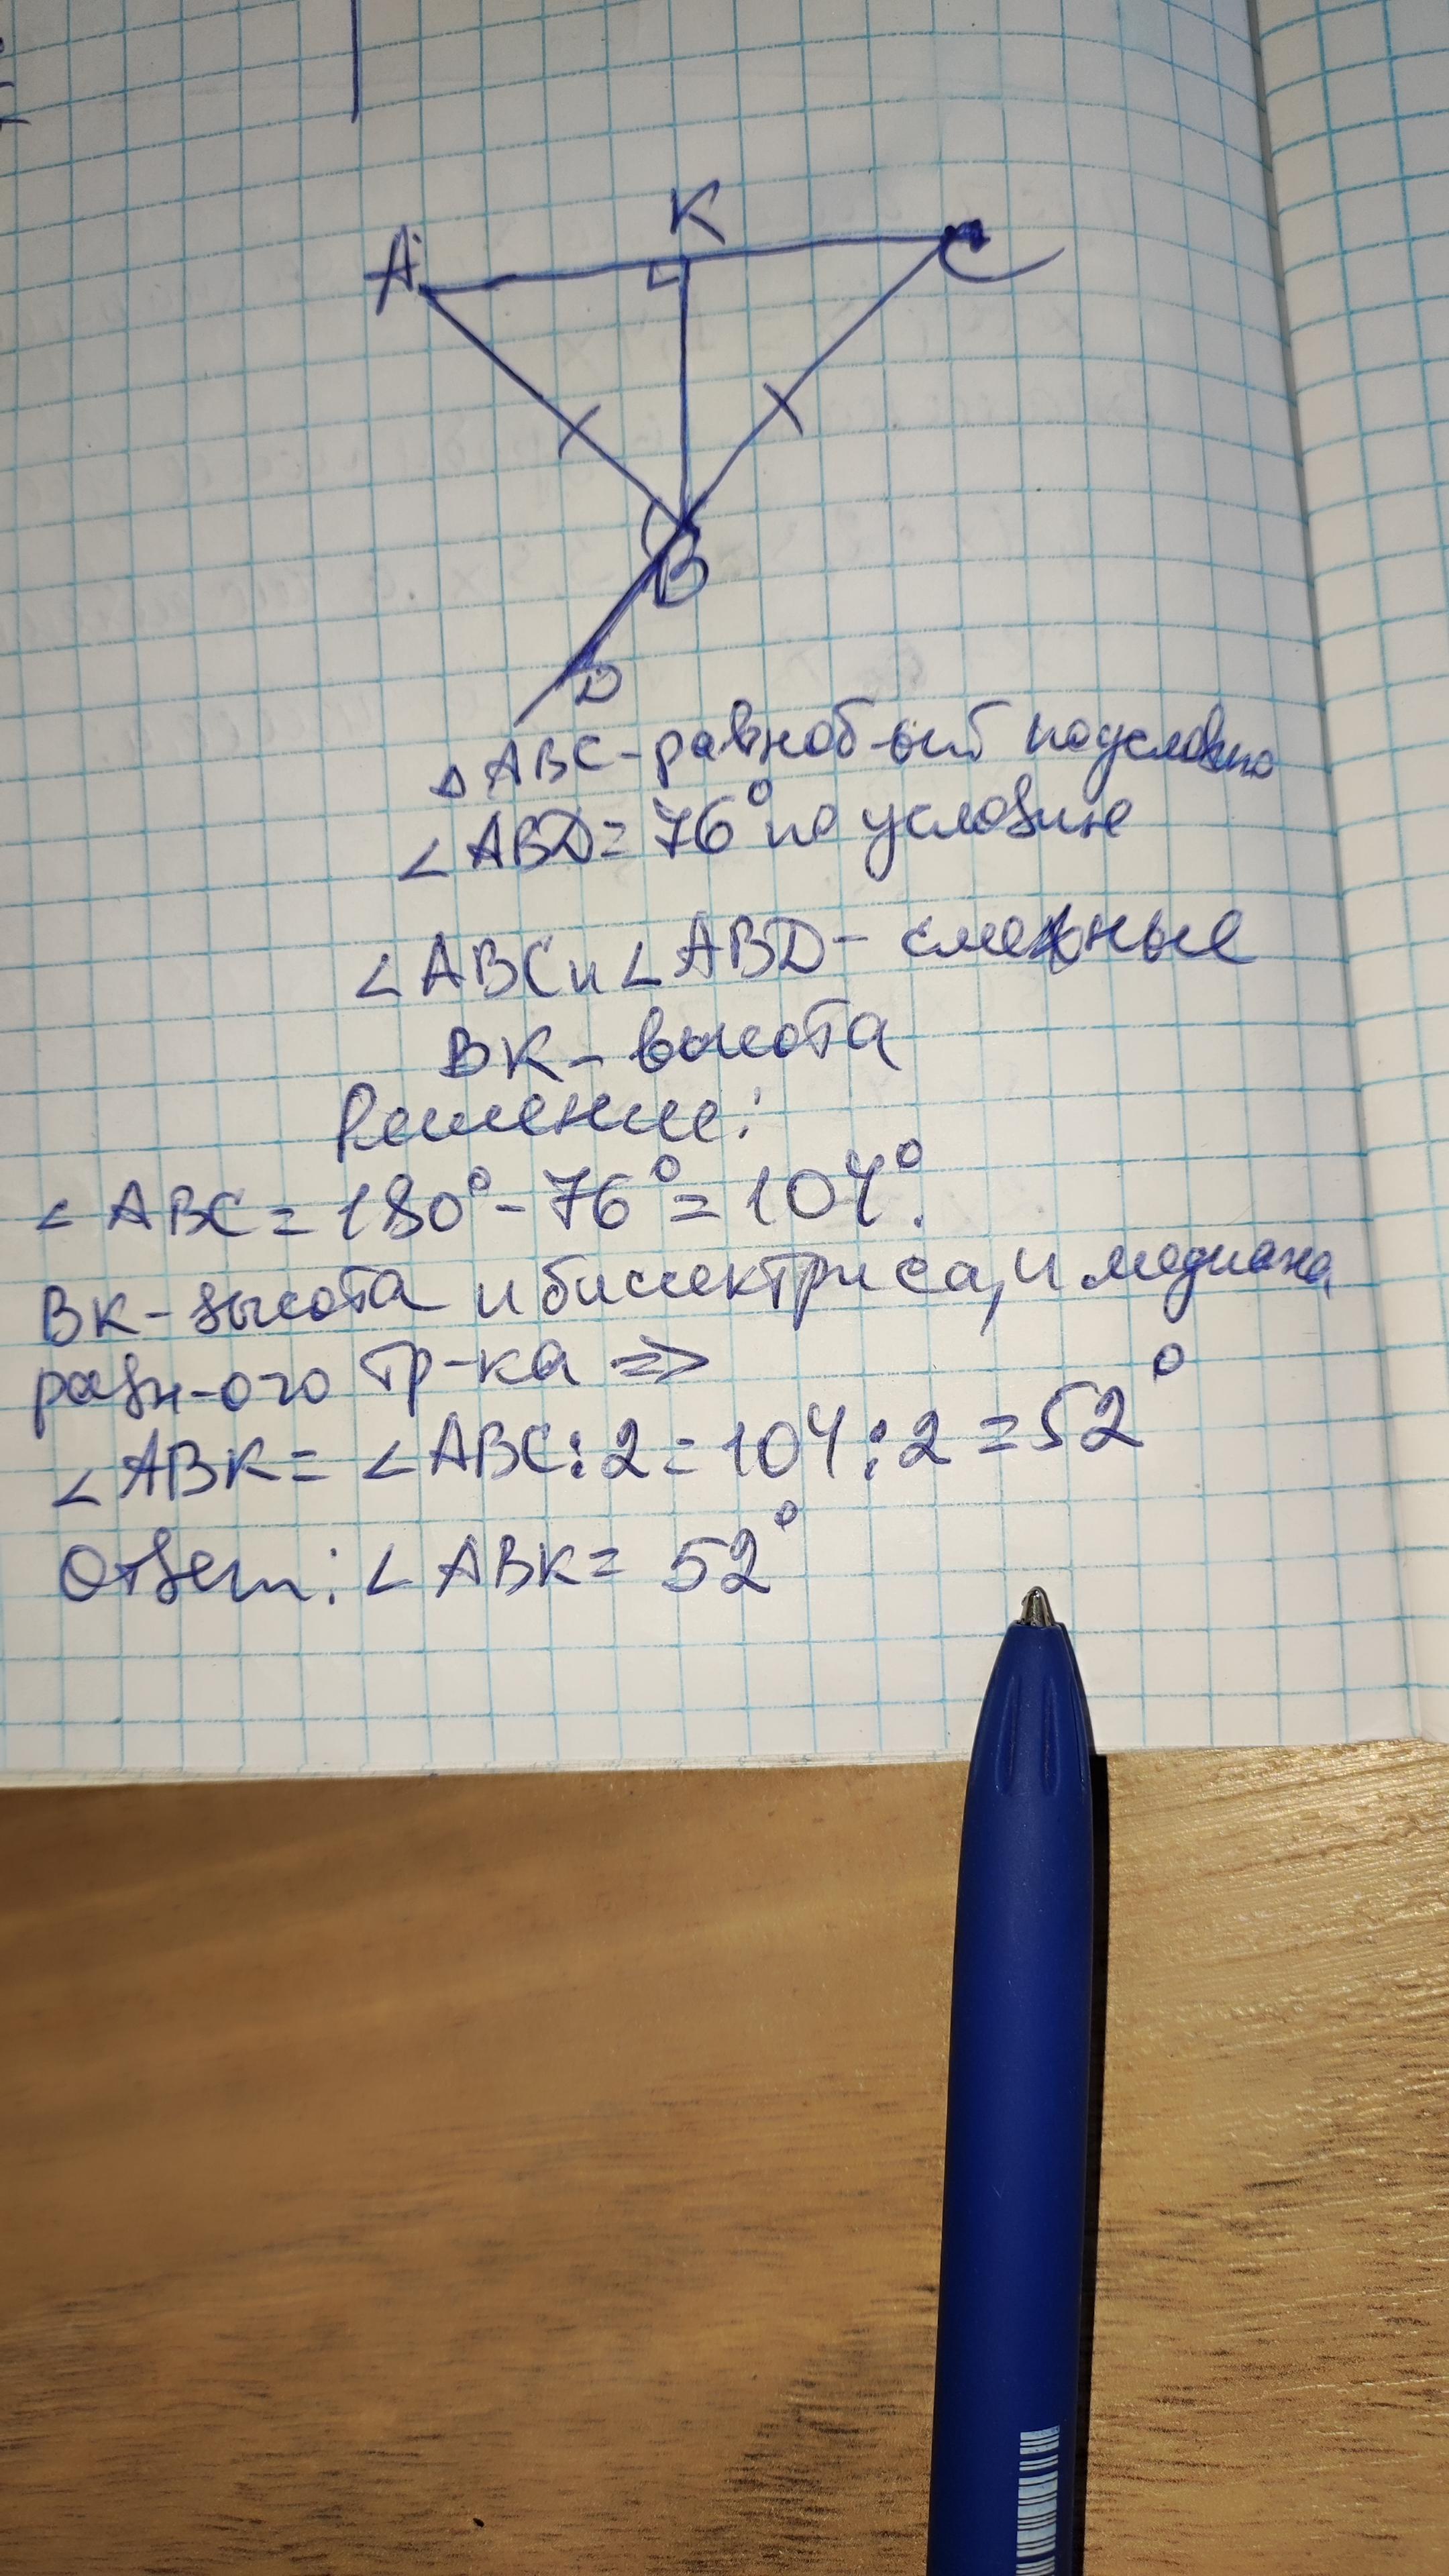 K
A
C
B
D
△ ABC - равноб-ый по условию
∠ ABD = 76° по условию
∠ ABC и ∠ ABD - смежные
BK - высота
Решение:
∠ ABC = 180° - 76° = 104°.
BK - высота и биссектриса, и медиана
равн-ого тр-ка ⇒
∠ ABK = ∠ ABC : 2 = 104 : 2 = 52°
Ответ: ∠ ABK = 52°